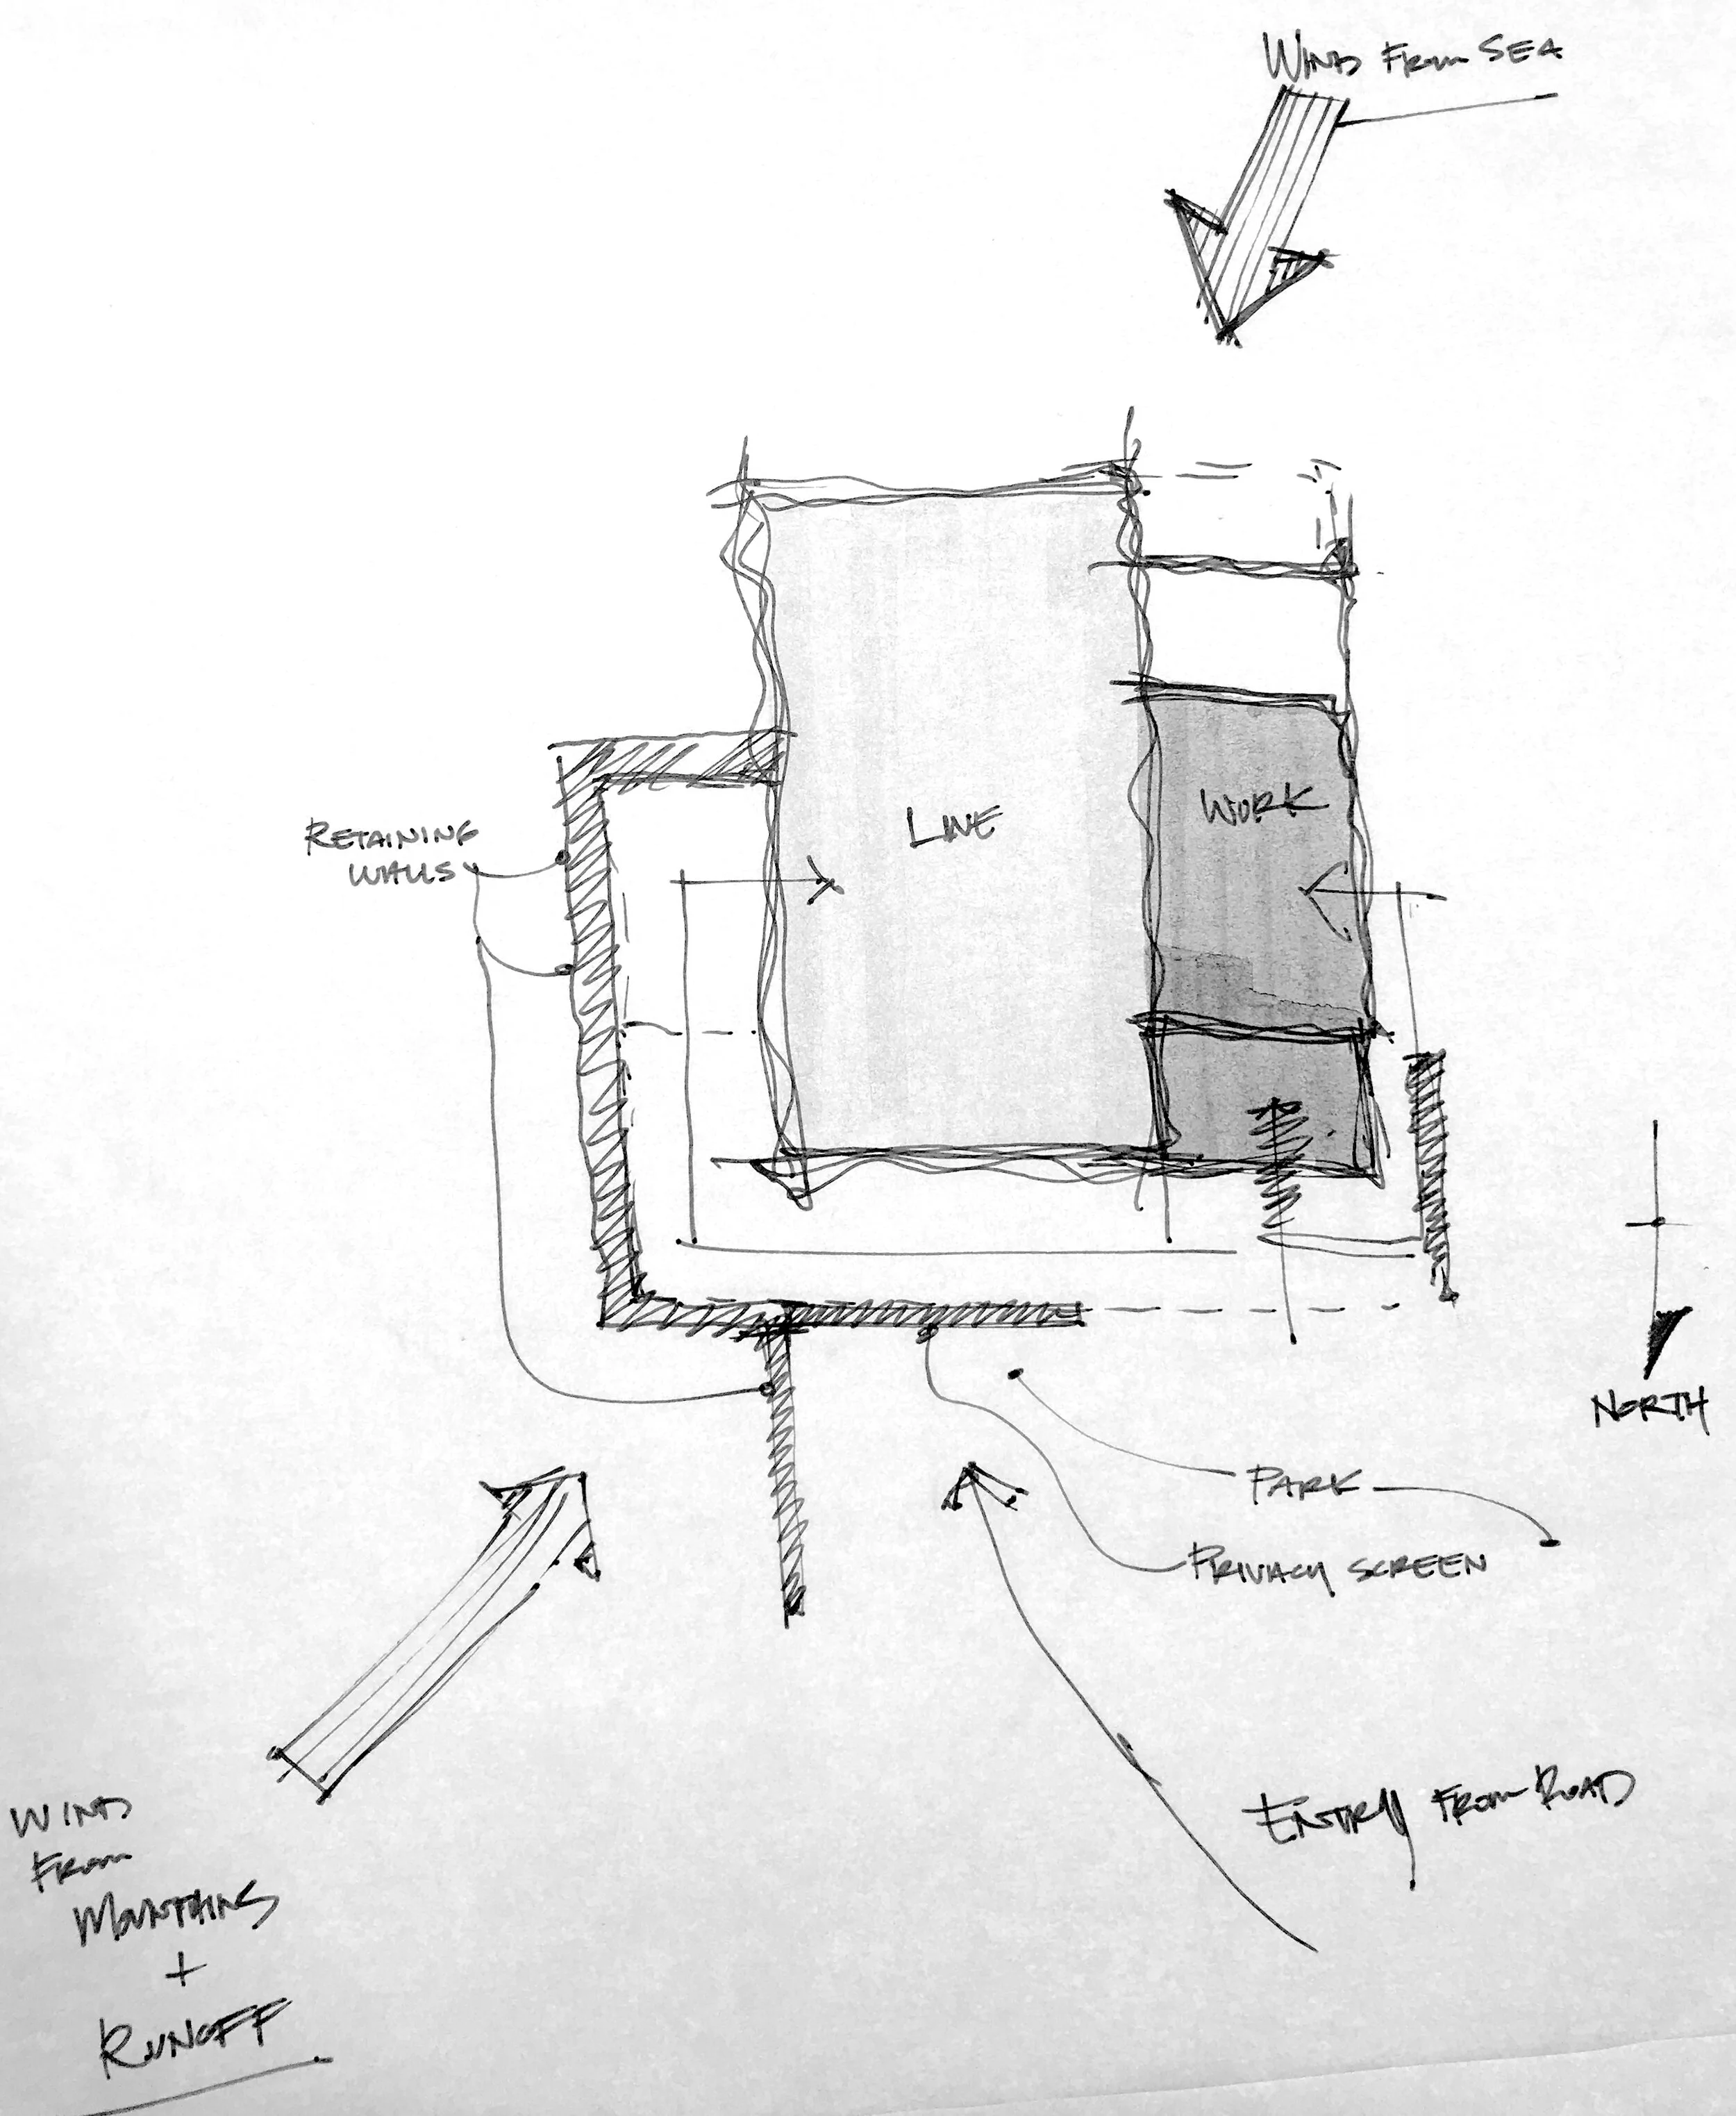 WIND FROM SEA
LIVE
WORK
RETAINING
WALLS
NORTH
PARK
PRIVACY SCREEN
ENTRY FROM ROAD
WIND
FROM
MOUNTAINS
+
RUNOFF